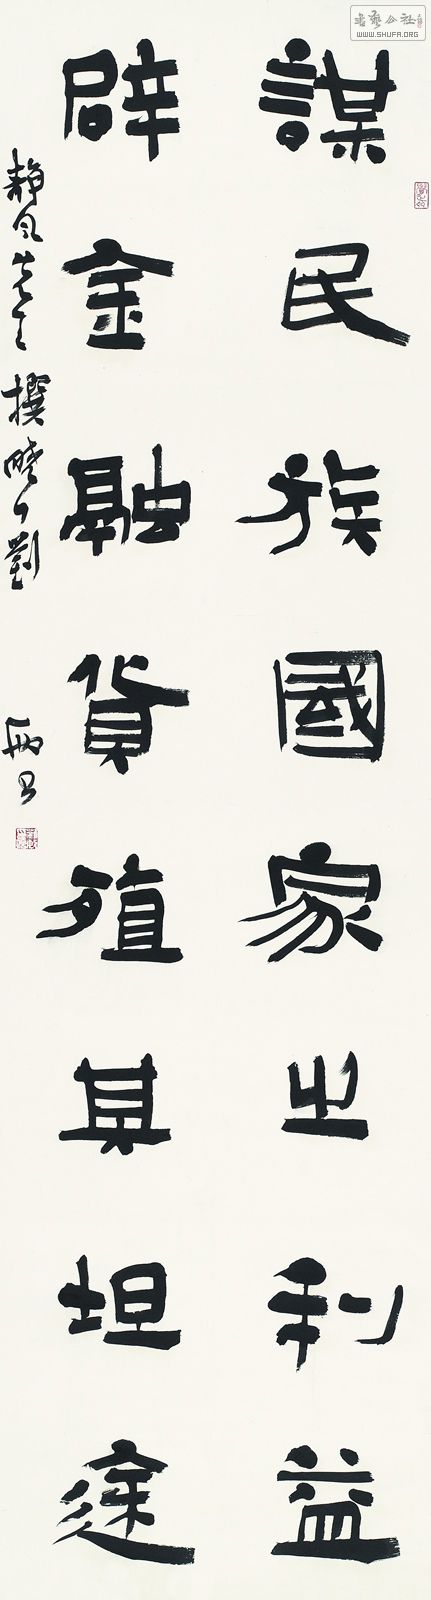 謀民族國家之利益
辟金融貨殖其坦途
静风先生撰 晓公刘炳书
書藝公社
WWW.SHUFA.ORG